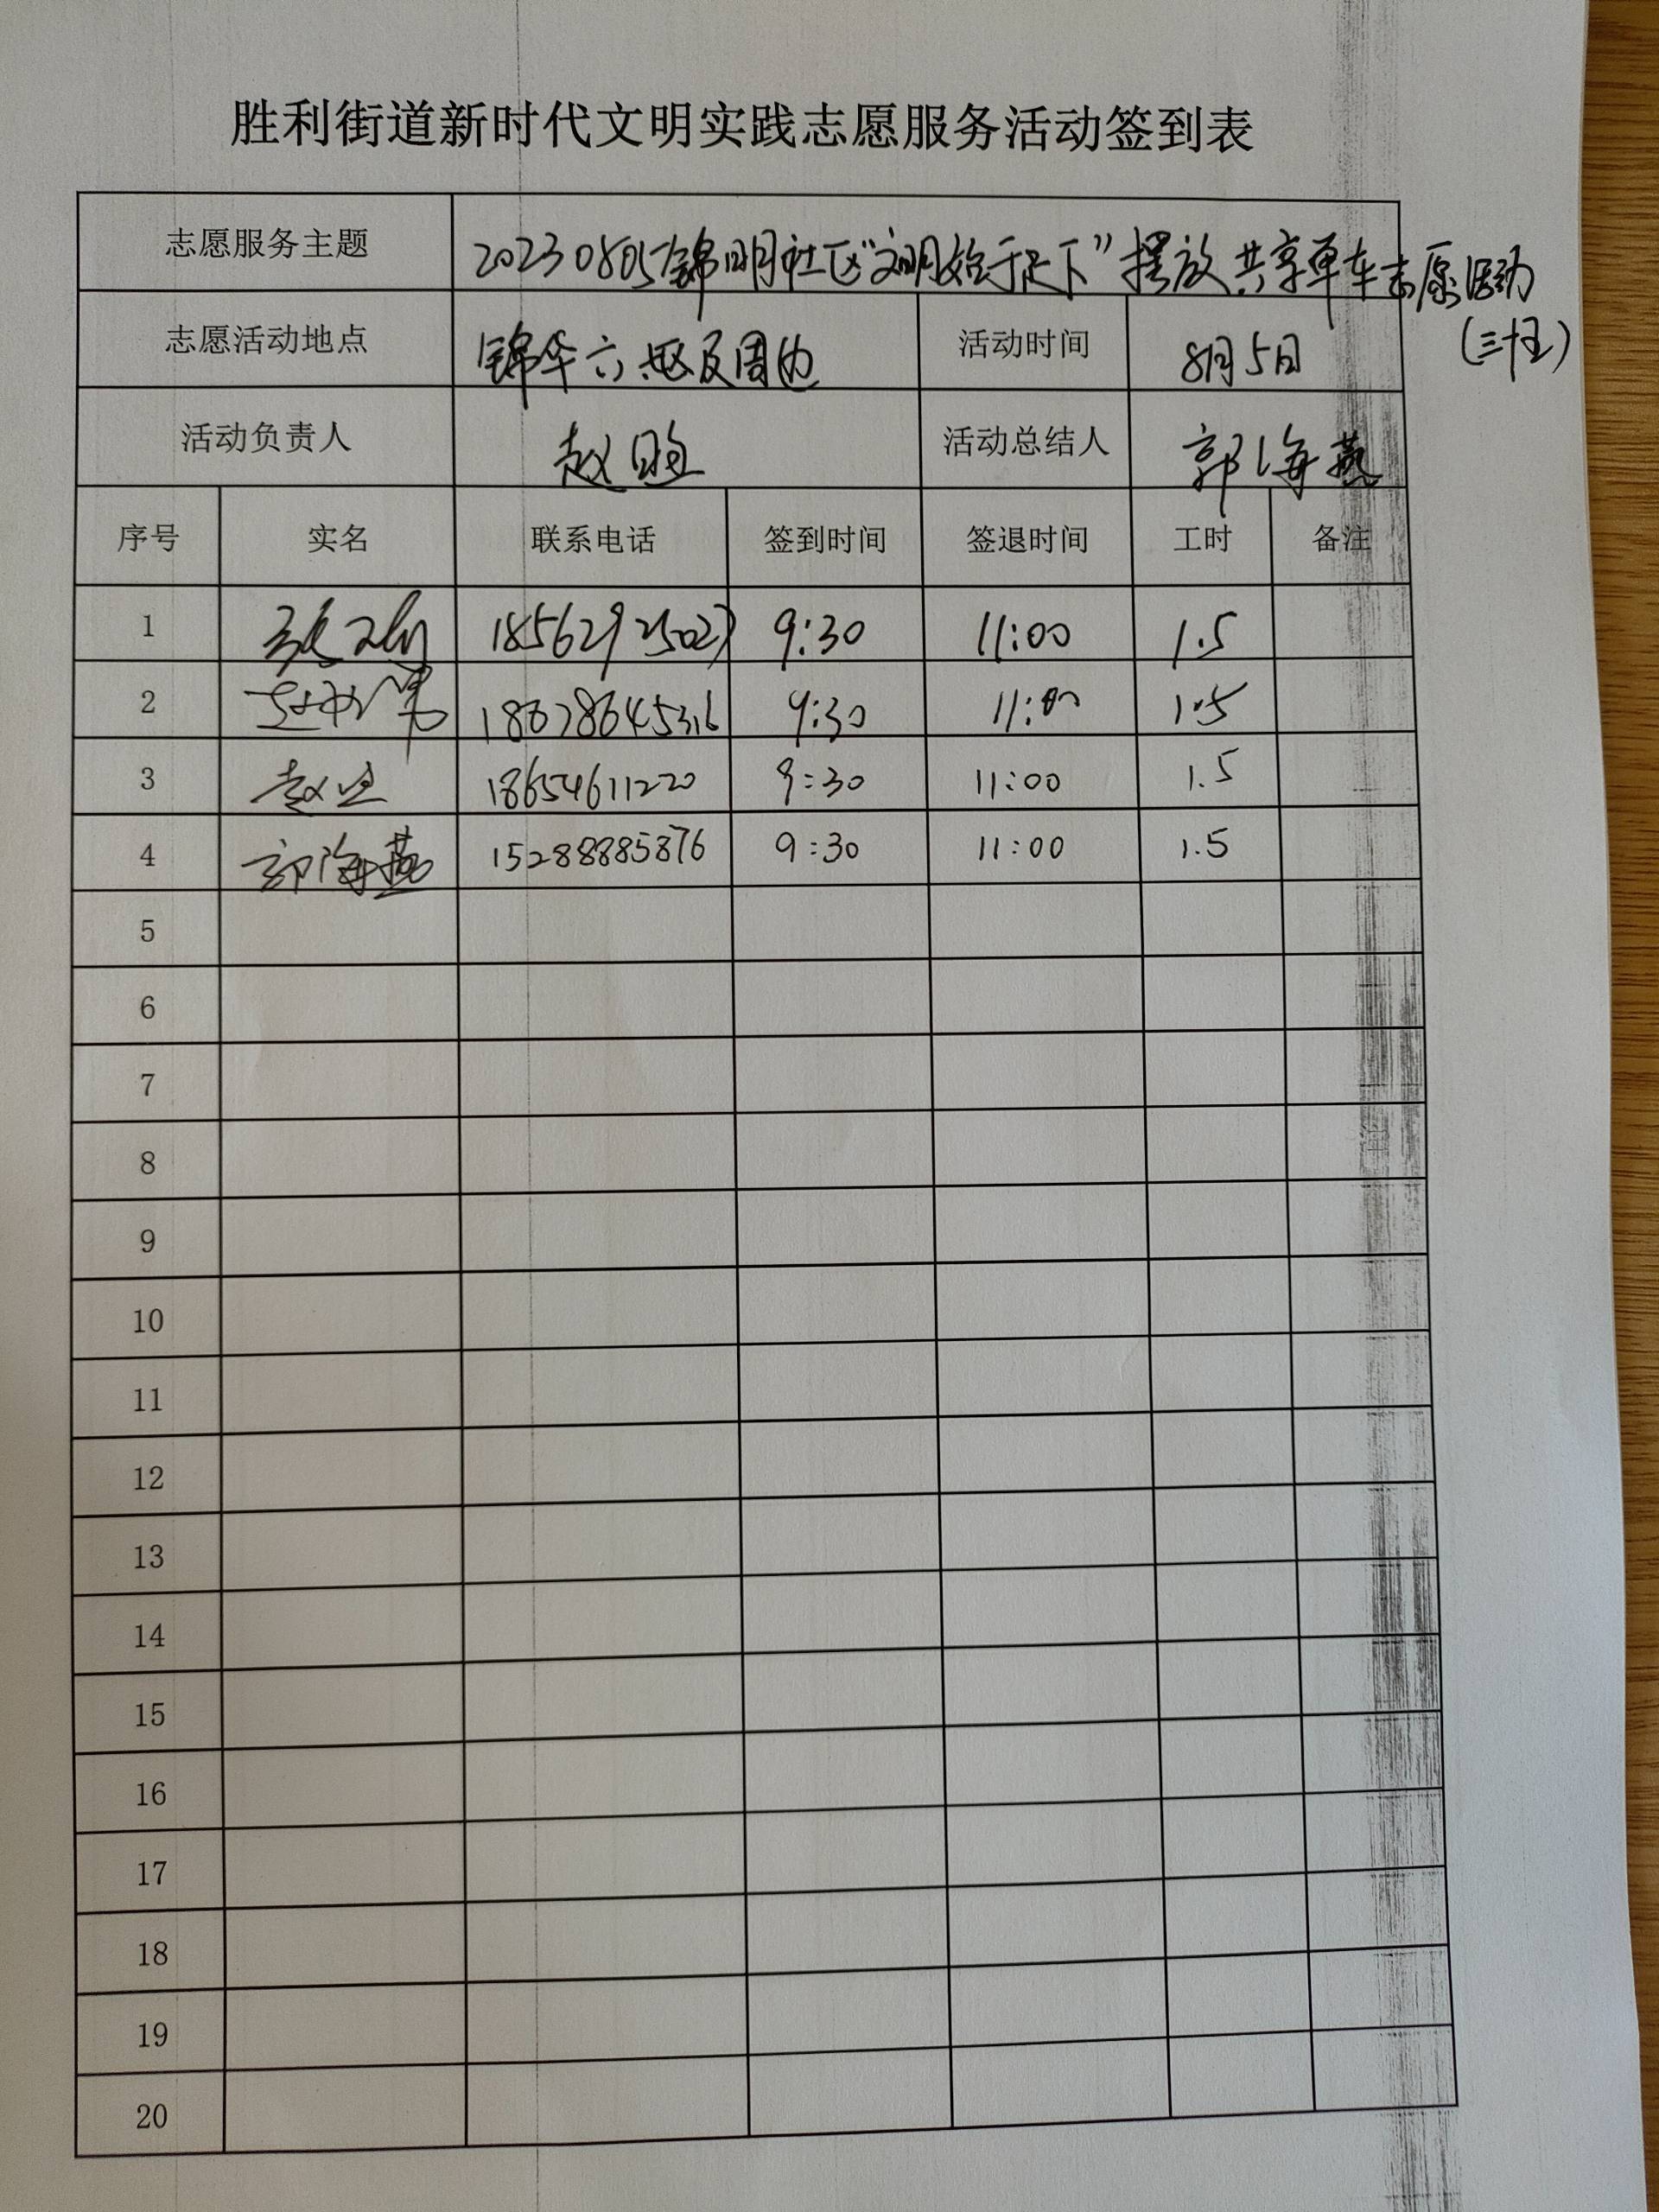 胜利街道新时代文明实践志愿服务活动签到表
志愿服务主题 20230805锦明社区“文明始于足下”摆放共享单车志愿活动
(三十五)
志愿活动地点 锦华六区及周边 活动时间 8月5日
活动负责人 赵 活动总结人 郭海燕
序号 实名 联系电话 签到时间 签退时间 工时 备注
1 18562925027 9:30 11:00 1.5
2 18678645316 9:30 11:00 1.5
3 赵 18654611220 9:30 11:00 1.5
4 郭海燕 15288885876 9:30 11:00 1.5
5
6
7
8
9
10
11
12
13
14
15
16
17
18
19
20